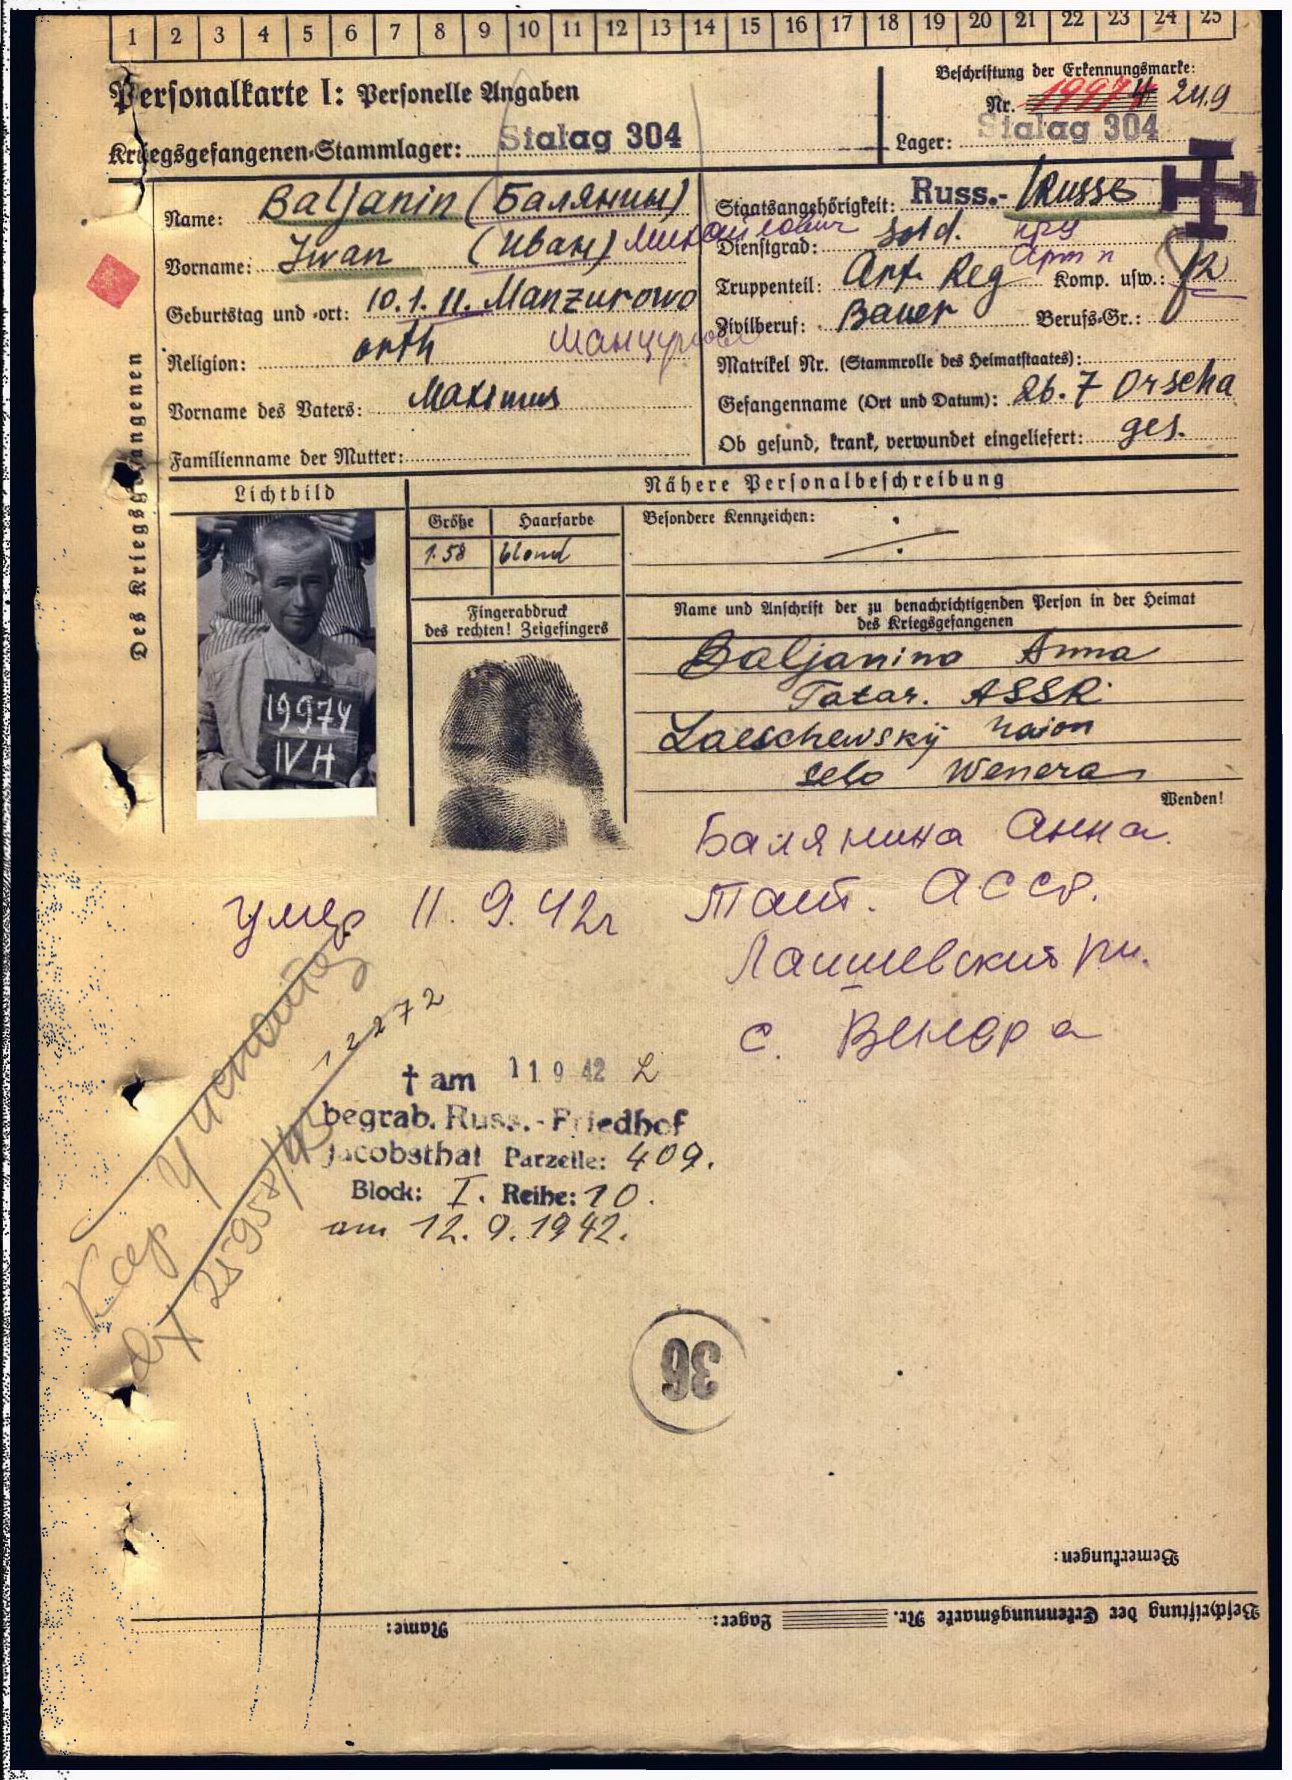 1 2 3 4 5 6 7 8 9 10 11 12 13 14 15 16 17 18 19 20 21 22 23 24 25
Personalkarte I: Personelle Angaben
Kriegsgefangenen-Stammlager: Stalag 304
Beschriftung der Erkennungsmarke:
Nr. 19974 249
Lager: Stalag 304
Des Kriegsgefangenen
Name: Baljanin (Балянин)
Vorname: Iwan (Иван) Михайлович
Geburtstag und -ort: 10.1.11. Manzurowo
Манцурово
Religion: orth
Vorname des Vaters: Maksimus
Familienname der Mutter:
Staatsangehörigkeit: Russ.- Russe
Dienstgrad: Sold.
Truppenteil: Art. Reg Komp. usw.: 12
Zivilberuf: Bauer Berufs-Gr.:
Matrikel Nr. (Stammrolle des Heimatstaates):
Gefangenname (Ort und Datum): 26.7 Orscha
Ob gesund, krank, verwundet eingeliefert: ges.
Lichtbild
Nähere Personalbeschreibung
Größe Haarfarbe
1.58 blond
Besondere Kennzeichen:
19974
IV H
Fingerabdruck
des rechten! Zeigefingers
Name und Anschrift der zu benachrichtigenden Person in der Heimat
des Kriegsgefangenen
Baljanina Anna
Tatar. ASSR
Laeschewskij raion
selo Wenera
Wenden!
Балянина Анна.
Тат. АССР.
Лаишевский рн.
с. Венера
умер 11.9.42г
12272
† am 11 9 42
begrab. Russ.-Friedhof
Jacobsthal Parzelle: 409.
Block: I. Reihe: 10.
am 12.9.1942.
36
Bemerkungen:
Beschriftung der Erkennungsmarke Nr.
Lager:
Name: